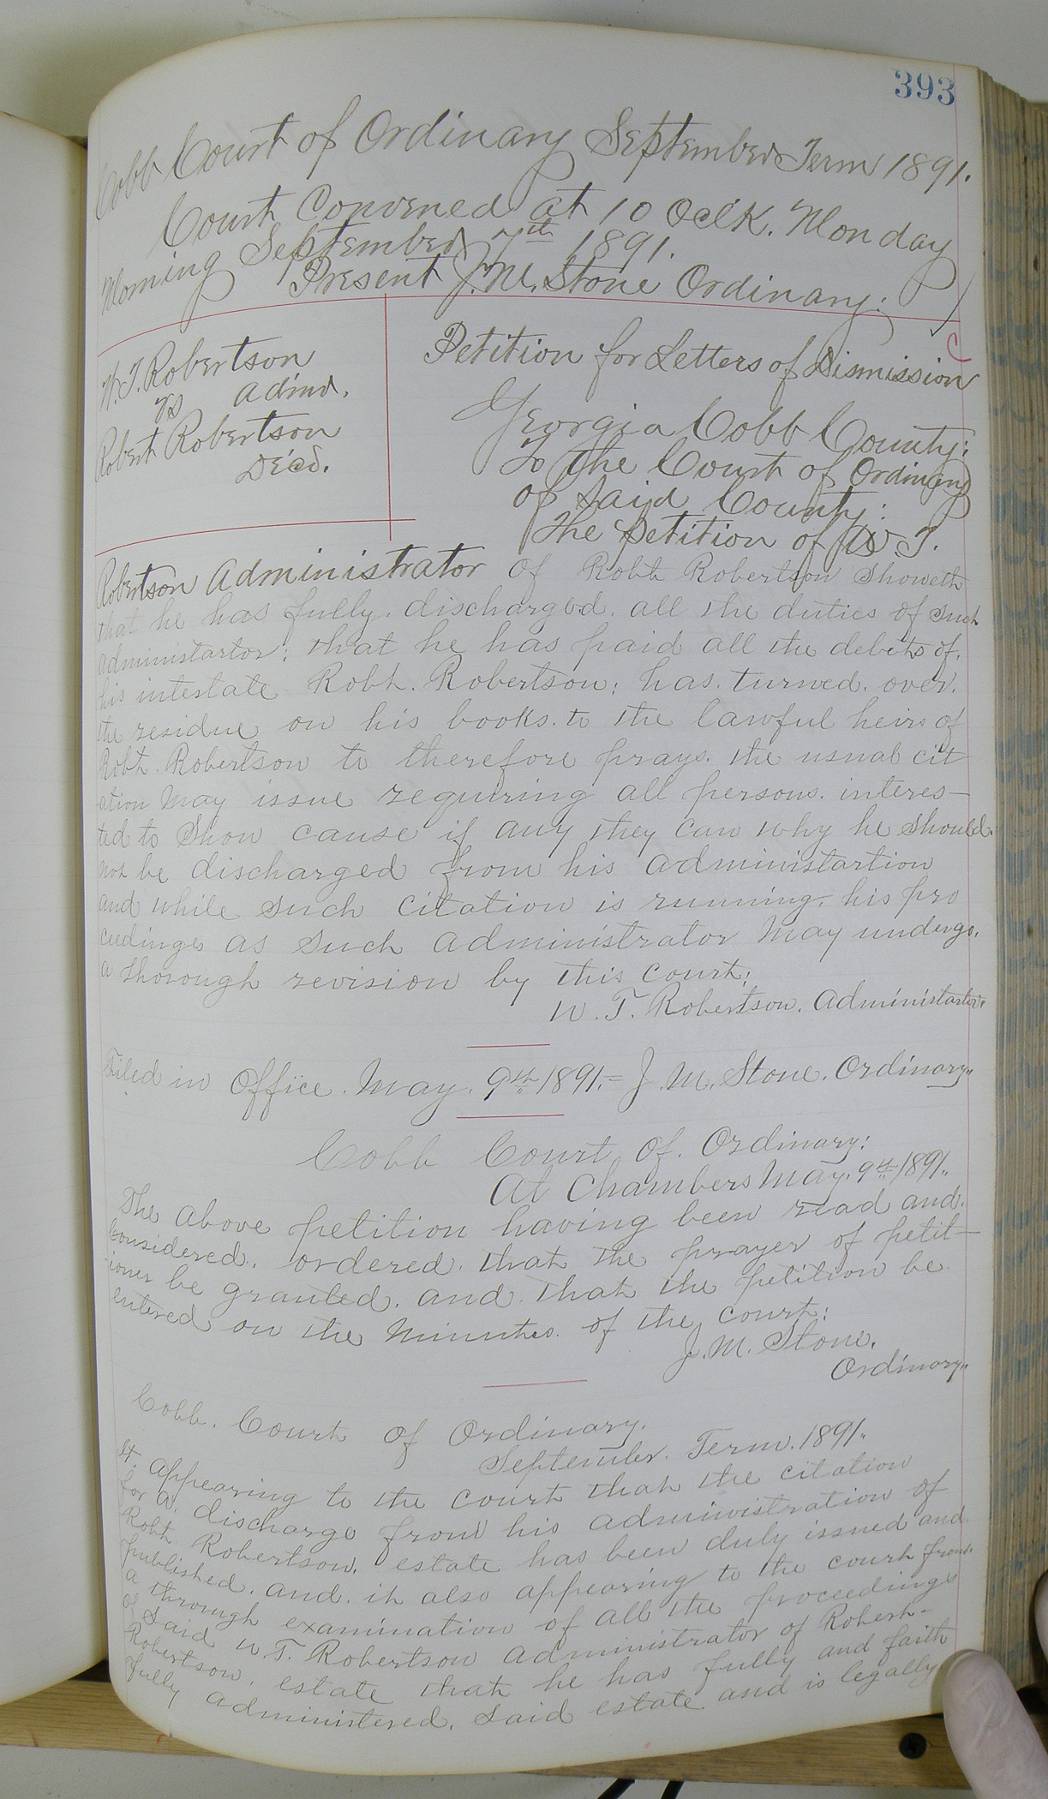 393
Cobb Court of Ordinary September Term 1891.
Court Convened at 10 Oclk. Monday
Morning September 7th 1891.
Present J.M. Stone Ordinary:
W.T. Robertson
vs Admr.
Robert Robertson
Decd.
Petition for Letters of Dismission
Georgia Cobb County:
To the Court of Ordinary
of said County:
The petition of W T.
Robertson Administrator of Robt Robertson Showeth
that he has fully. discharged. all the duties of such
administartor: that he has paid all the debts of.
his intestate Robt. Robertson: has. turned. over.
the residue on his books. to the lawful heirs of
Robt. Robertson to therefore prays. the usual cit
ation May issue requiring all persons. interes-
ted to Show cause if any they can why he should.
not be discharged from his administartion
and while such citation is running. his pro
ceedings as such administrator May undergo.
a thorough revision by this court:
W. T. Robertson. Administartor.
Filed in office. May. 9th 1891.= J. M. Stone. Ordinary.
Cobb Court Of. Ordinary:
At Chambers May. 9th 1891.
The above petition having been read and.
considered. ordered. that the prayer of petit-
ioner be granted. and. that the petition be
entered on the Minutes. of the court:
J. M. Stone.
Ordinary.
Cobb. Court of Ordinary.
September. Term. 1891.
It. appearing to the court that the citation
for a discharge from his administration of
Robt Robertson. estate has been duly issued and
published. and. it also appearing to the court from
a through examination of all the proceedings
of said W. T. Robertson administrator of Robert-
Robertson. estate that he has fully and faith
fully administered. said estate and is legally